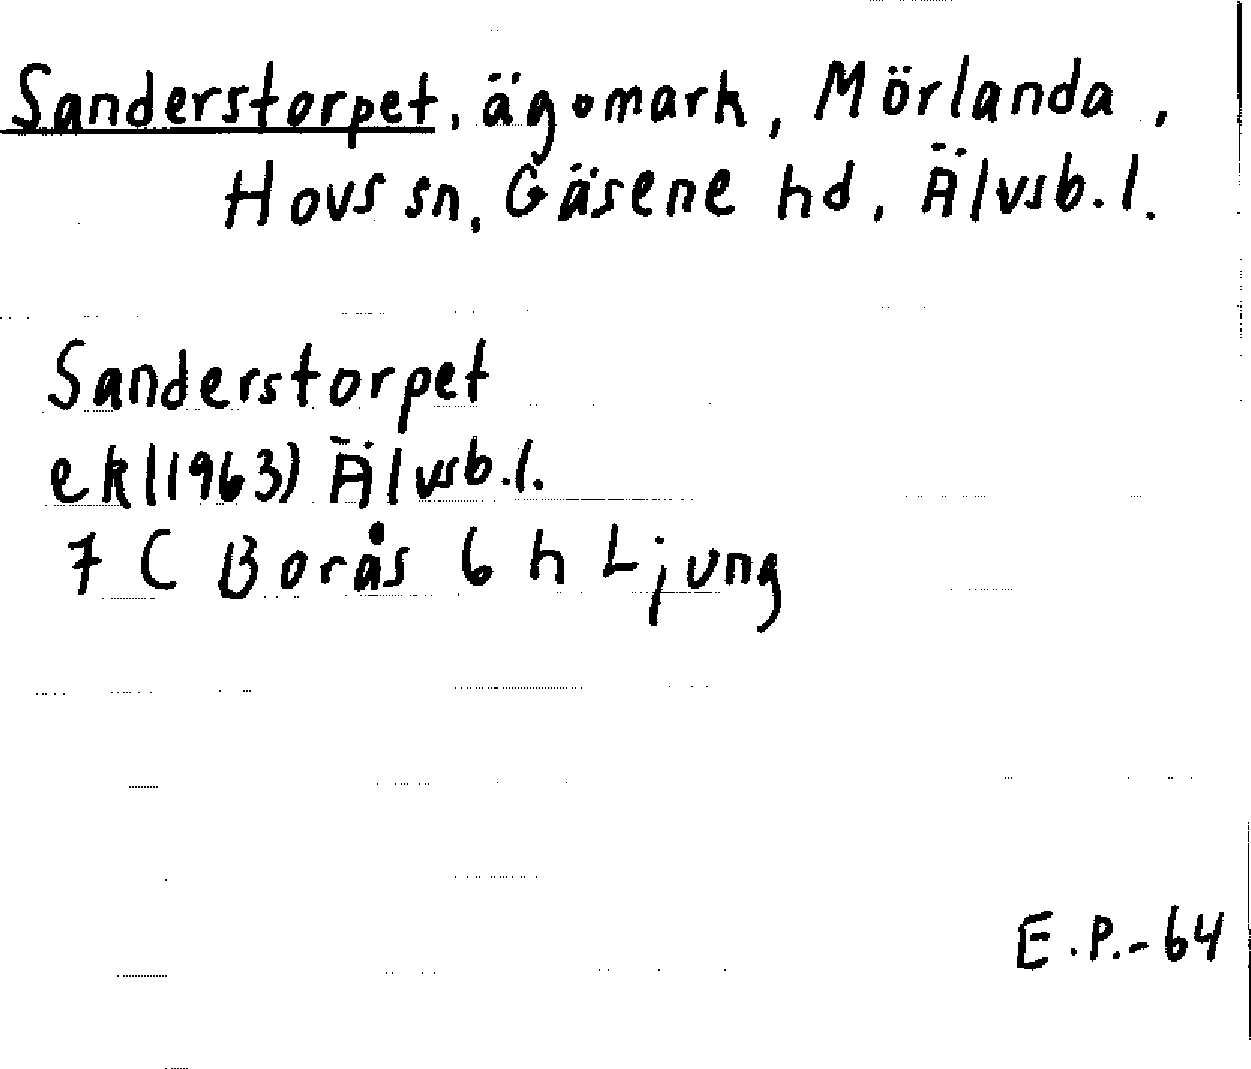 Sanderstorpet, ägomark, Mörlanda,
Hovs sn, Gäsene hd, Älvsb. l.
Sanderstorpet
ek (1963) Älvsb. l.
7 C Borås 6 h Ljung
E.P.-64